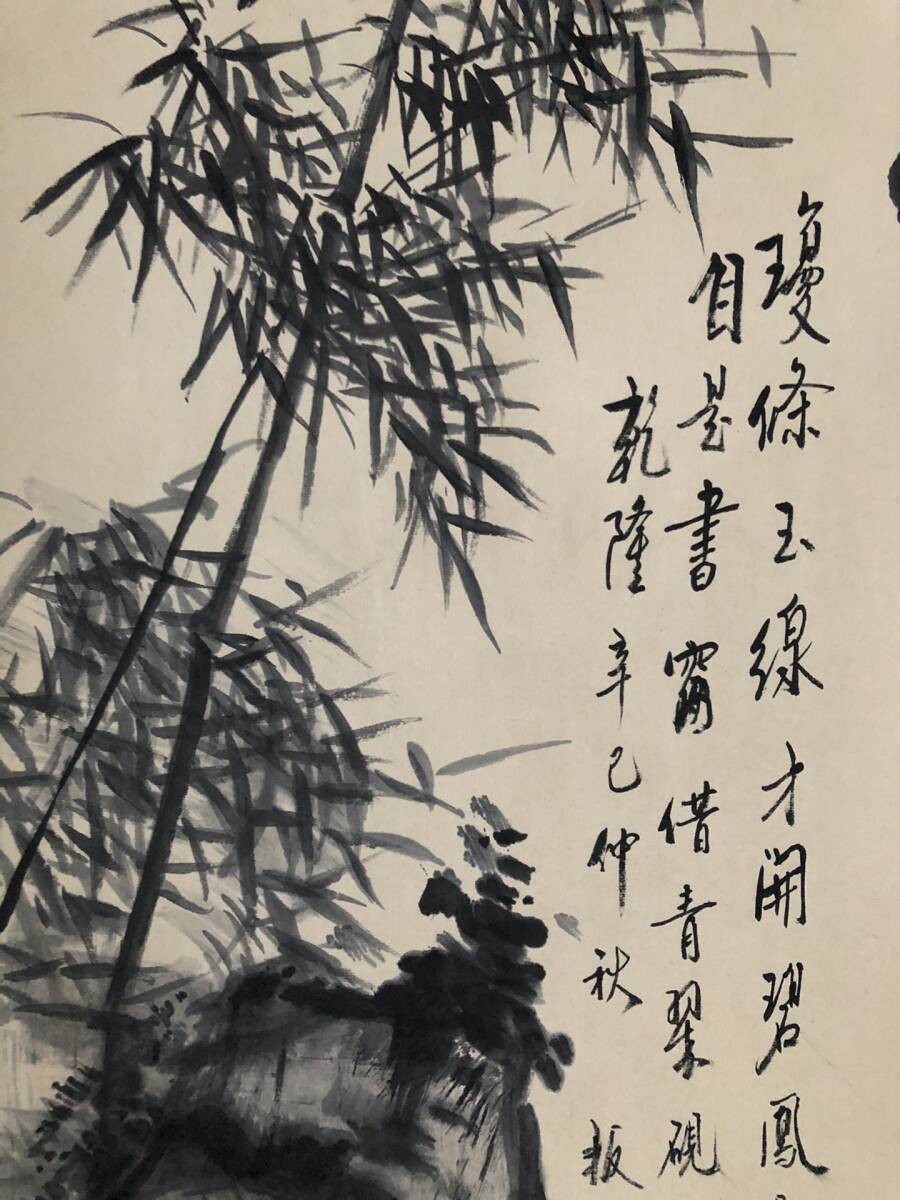 瓊條玉線才開碧鳳
自是書窗借青翠硯
乾隆辛巳仲秋 板